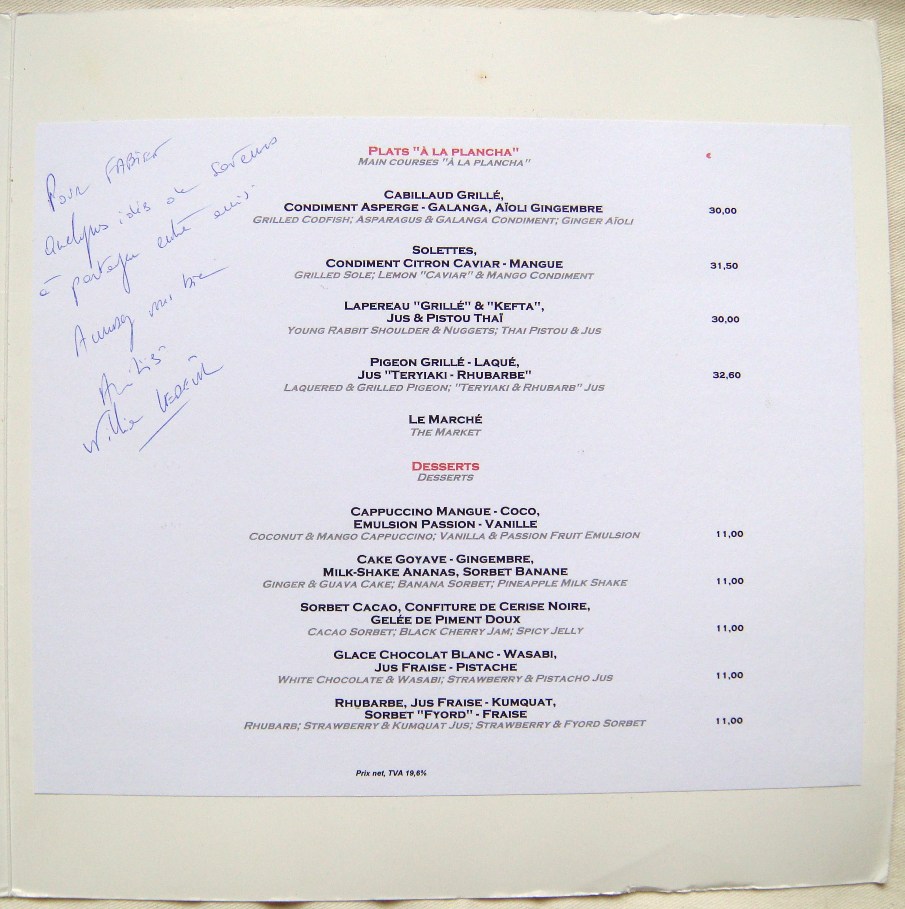 Pour FABIEN
quelques idées de saveurs
à partager entre amis.
Amusez vous bien
Amitiés
William LEDEUIL
PLATS "À LA PLANCHA" €
MAIN COURSES "À LA PLANCHA"
CABILLAUD GRILLÉ,
CONDIMENT ASPERGE - GALANGA, AÏOLI GINGEMBRE 30,00
GRILLED CODFISH; ASPARAGUS & GALANGA CONDIMENT; GINGER AÏOLI
SOLETTES,
CONDIMENT CITRON CAVIAR - MANGUE 31,50
GRILLED SOLE; LEMON "CAVIAR" & MANGO CONDIMENT
LAPEREAU "GRILLÉ" & "KEFTA",
JUS & PISTOU THAÏ 30,00
YOUNG RABBIT SHOULDER & NUGGETS; THAI PISTOU & JUS
PIGEON GRILLÉ - LAQUÉ,
JUS "TERIYAKI - RHUBARBE" 32,60
LAQUERED & GRILLED PIGEON; "TERIYAKI & RHUBARB" JUS
LE MARCHÉ
THE MARKET
DESSERTS
DESSERTS
CAPPUCCINO MANGUE - COCO,
EMULSION PASSION - VANILLE
COCONUT & MANGO CAPPUCCINO; VANILLA & PASSION FRUIT EMULSION 11,00
CAKE GOYAVE - GINGEMBRE,
MILK-SHAKE ANANAS, SORBET BANANE
GINGER & GUAVA CAKE; BANANA SORBET; PINEAPPLE MILK SHAKE 11,00
SORBET CACAO, CONFITURE DE CERISE NOIRE,
GELÉE DE PIMENT DOUX
CACAO SORBET; BLACK CHERRY JAM; SPICY JELLY 11,00
GLACE CHOCOLAT BLANC - WASABI,
JUS FRAISE - PISTACHE
WHITE CHOCOLATE & WASABI; STRAWBERRY & PISTACHO JUS 11,00
RHUBARBE, JUS FRAISE - KUMQUAT,
SORBET "FYORD" - FRAISE
RHUBARB; STRAWBERRY & KUMQUAT JUS; STRAWBERRY & FYORD SORBET 11,00
Prix net, TVA 19,6%